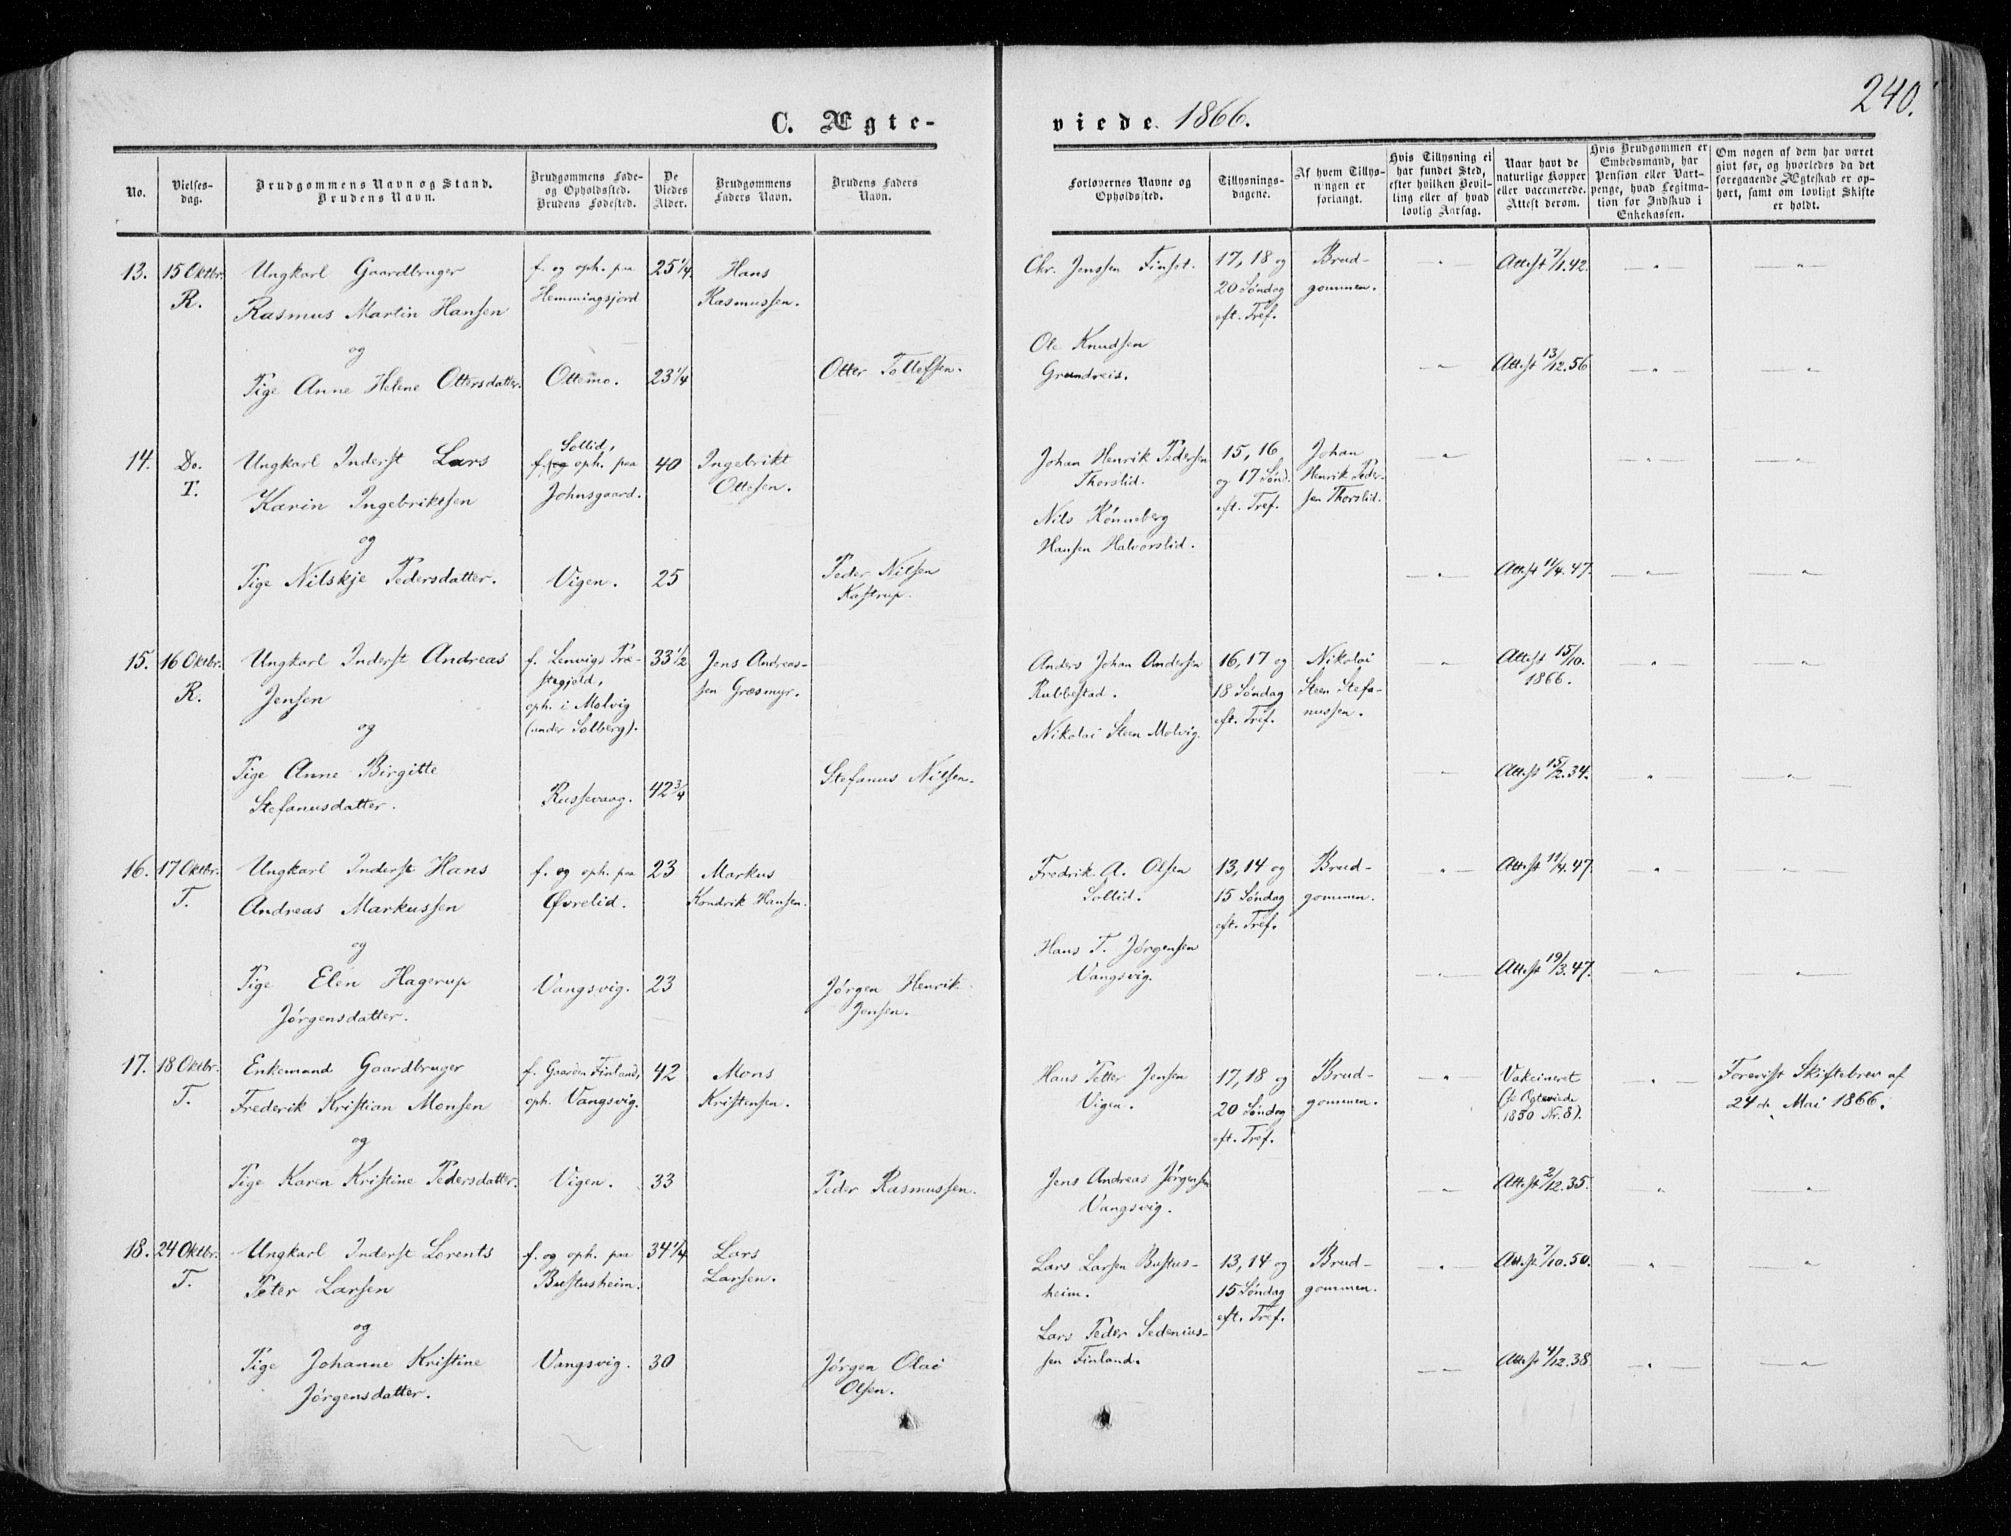 240.
C. Ægte-
viede. 1866.
No.
Vielses-
dag.
Brudgommens Navn og Stand.
Brudens Navn.
Brudgommens Føde-
og Opholdssted.
Brudens Fødested.
De
Viedes
Alder.
Brudgommens
Faders Navn.
Brudens Faders
Navn.
Forlovernes Navne og
Opholdssted.
Tillysnings-
dagene.
Af hvem Tillys-
ningen er
forlangt.
Hvis Tillysning ei
har fundet Sted,
efter hvilken Bevil-
ling eller af hvad
lovlig Aarsag.
Naar havt de
naturlige Kopper
eller vaccinerede.
Attest derom.
Hvis Brudgommen er
Embedsmand, har
Pension eller Vart-
penge, hvad Legitima-
tion for Indskud i
Enkekassen.
Om nogen af dem har været
givt før, og hvorledes da det
foregaaende Ægteskab er op-
hørt, samt om lovligt Skifte
er holdt.
13.
15 Oktbr.
R.
Ungkarl Gaardbruger
Rasmus Martin Hansen
og
Pige Anne Helene Ottersdatter.
f. og oph. paa
Hemmingsjord
Ottemo.
25 1/4
23 1/4
Hans
Rasmussen.
Otter Tollefsen.
Chr. Jenssen Finset.
Ole Knudsen
Grundreis.
17, 18 og
20 Søndag
eft. Tref.
Brud-
gommen.
Attest 7/1.42.
Attest 13/12.56
14.
Do.
T.
Ungkarl Inderst Lars
Karin Ingebriktsen
og
Pige Nilskje Pedersdatter.
Sollid,
f. og oph. paa
Johnsgaard.
Vigen.
40
25
Ingebrikt
Ottesen.
Peder Nilsen
Kastrup.
Johan Henrik Pedersen
Thorslid.
Nils Rønneberg
Hansen Halvorslid.
15, 16
og 17 Sønd.
eft. Tref.
Johan
Henrik Peder-
sen Thorslid.
Attest 11/4.47.
15.
16 Oktbr.
R.
Ungkarl Inderst Andreas
Jensen
og
Pige Anne Birgitte
Stefanusdatter.
f. Lenvigs Præ-
stegjeld,
oph. i Molvig
(under Solberg).
Russevaag.
33 1/2
42 3/4
Jens Andreas-
sen Græsmyr.
Stefanus Nilsen.
Anders Johan Andersen
Rubbestad.
Nikolai Steen Molvig.
16, 17 og
18 Søndag
eft. Tref.
Nikolai
Steen Stefa-
nussen.
Attest 15/10.
1866.
Attest 15/2.34.
16.
17 Oktbr.
T.
Ungkarl Inderst Hans
Andreas Markussen
og
Pige Elen Hagerup
Jørgensdatter.
f. og oph. paa
Øvrelid.
Vangsvig.
23
23
Markus
Kondrik Hansen.
Jørgen Henrik
Jensen.
Fredrik A. Olsen
Sollid.
Hans T. Jørgensen
Vangsvig.
13, 14 og
15 Søndag
eft. Tref.
Brud-
gommen.
Attest 11/4.47.
Attest 19/3.47.
17.
18 Oktbr.
T.
Enkemand Gaardbruger
Frederik Kristian Monsen
og
Pige Karen Kristine Pedersdatter.
f. Gaarden Finland,
oph. Vangsvig.
Vigen.
42
33
Mons
Kristensen.
Peder Rasmussen.
Hans Petter Jensen
Vigen.
Jens Andreas Jørgensen
Vangsvig.
17, 18 og
20 Søndag
eft. Tref.
Brud-
gommen.
Vakcineret
Ægteviede
1850 Nr. 8).
Attest 2/12.35.
Forevist Skiftebrev af
24de Mai 1866.
18.
24 Oktbr.
T.
Ungkarl Inderst Lorents
Peter Larsen
og
Pige Johanne Kristine
Jørgensdatter.
f. og oph. paa
Bustusheim.
Vangsvig.
34 1/4
30
Lars
Larsen.
Jørgen Olai
Olsen.
Lars Larsen Bustus-
heim.
Lars Peder Sedenius-
sen Finland.
13, 14 og
15 Søndag
eft. Tref.
Brud-
gommen.
Attest 7/10.50.
Attest 4/12.38